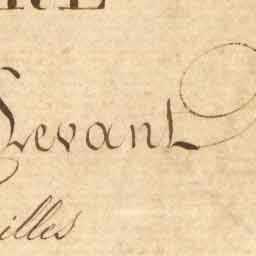 RE
Levant
illes